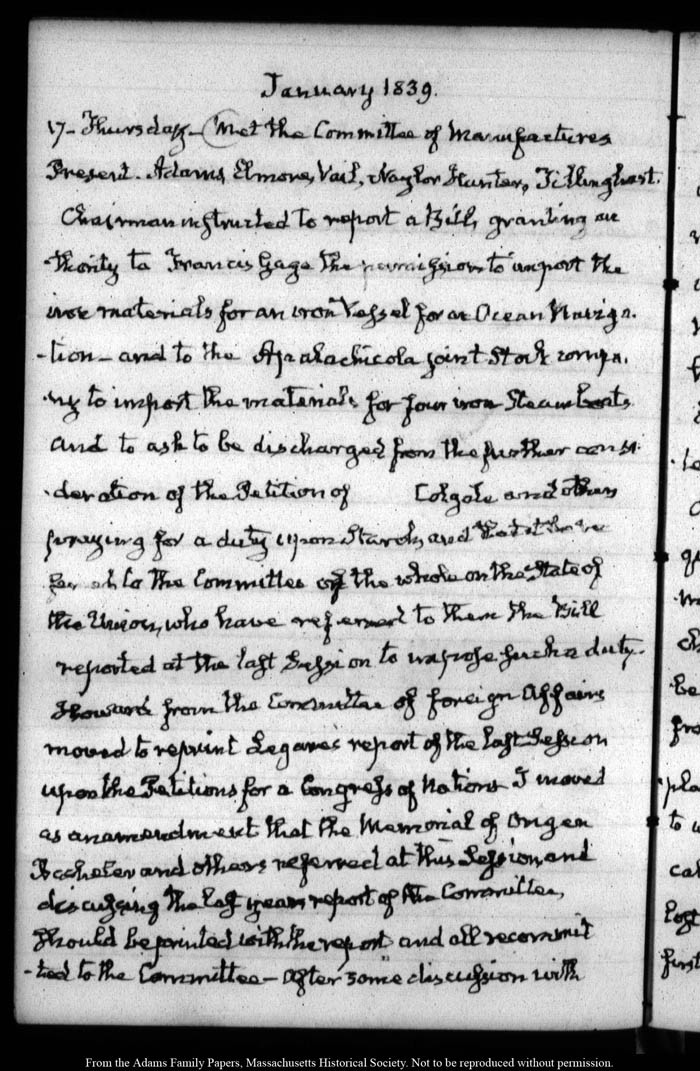 January 1839.
17 - Thursday - Met the Committee of Manufactures
Present. Adams, Elmore, Vail, Naylor Hunter, Tillinghast.
Chairman instructed to report a Bill, granting au
-thority to Francis Gage the permission to import the
iron materials for an iron Vessel for an Ocean Naviga-
-tion - and to the Apalachicola joint Stock compa-
-ny to import the materials for four iron Steam boats
and to ask to be discharged from the further consi-
-deration of the Petition of Colgate and others
praying for a duty upon Starch, and that it be re
to the Committee of the whole on the State of
the Union, who have referred to them the Bill
reported at the last Session to impose such a duty-
Howard from the Committee of foreign Affairs
moved to reprint Legare's report of the last Session
upon the Petitions for a Congress of Nations I moved
as an amendment that the Memorial of Origen
Bacheler and others referred at this Session, and
discussing the last years report of the Committee,
should be printed with the report and all recommit
-ted to the Committee - After some discussion with
From the Adams Family Papers, Massachusetts Historical Society. Not to be reproduced without permission.